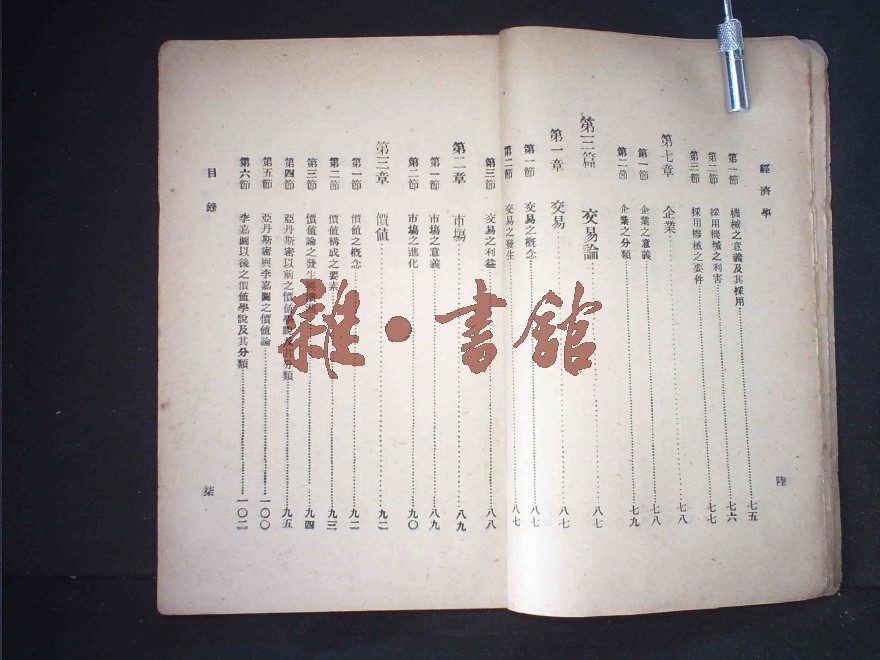 經濟學
第一節 機械之意義及其採用 七五
第二節 採用機械之利害 七六
第三節 採用機械之要件 七七
第七章 企業 七八
第一節 企業之意義 七八
第二節 企業之分類 七九
第三篇 交易論 八七
第一章 交易 八七
第一節 交易之概念 八七
第二節 交易之發生 八七
第三節 交易之利益 八八
第二章 市場 八九
第一節 市場之意義 八九
第二節 市場之進化 九〇
第三章 價值 九二
第一節 價值之概念 九二
第二節 價值構成之要素 九三
第三節 價值論之發生 九四
第四節 亞丹斯密以前之價值學說及其分類 九五
第五節 亞丹斯密與李嘉圖之價值論 一〇〇
第六節 李嘉圖以後之價值學說及其分類 一〇二
目錄
陸
柒
雜•書館